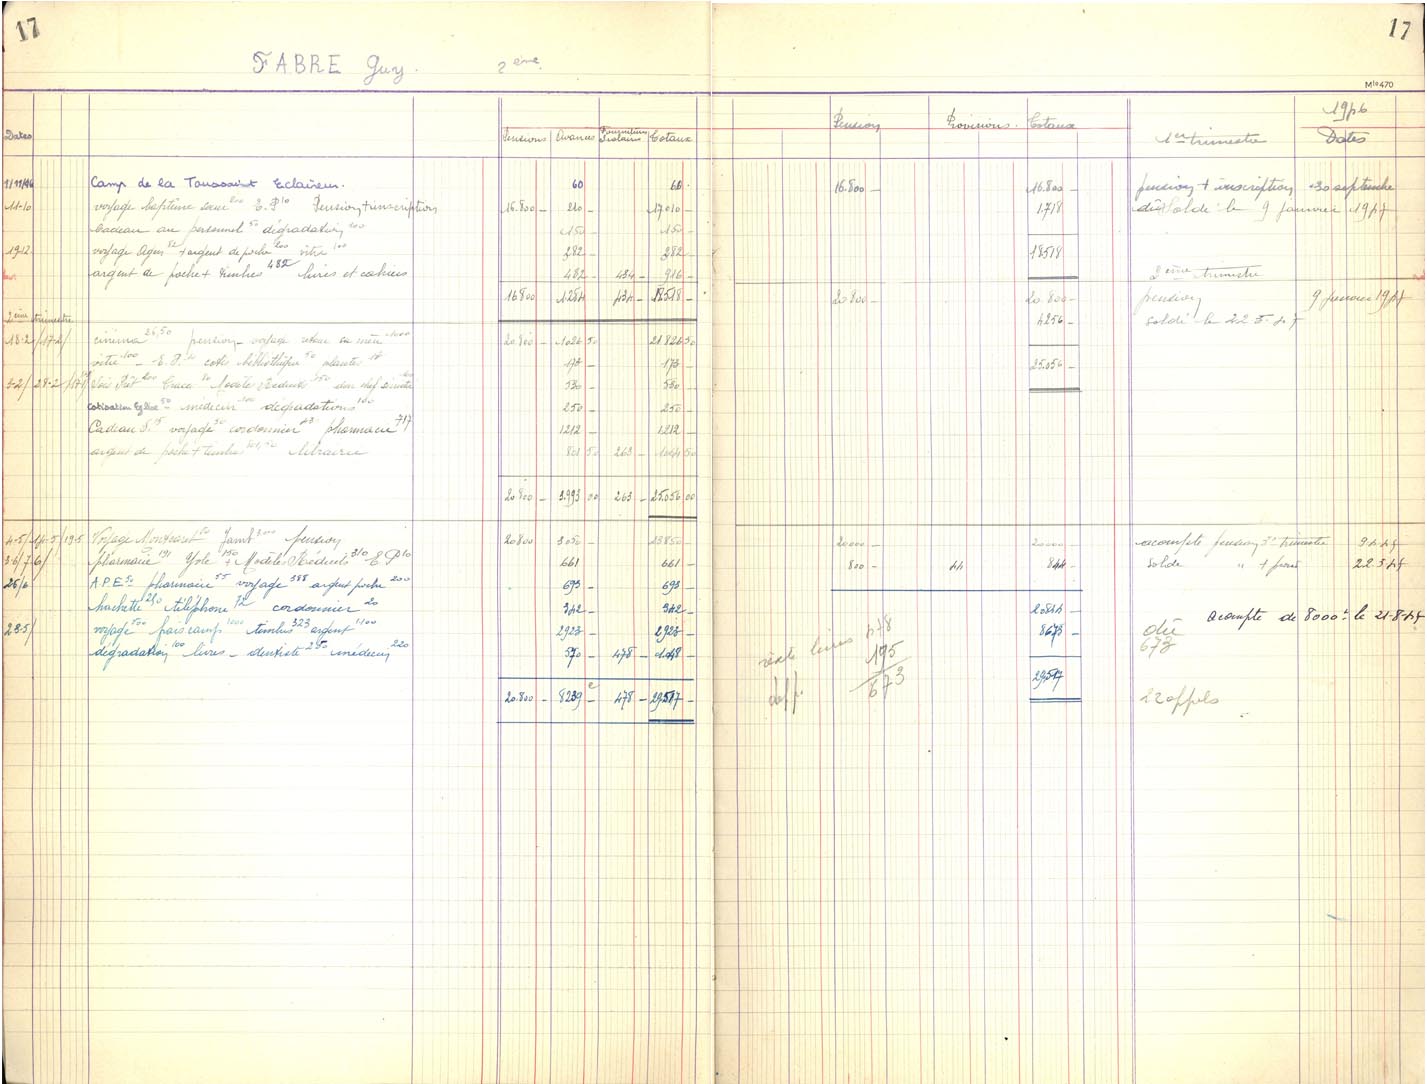 17
FABRE Guy. 2ème
Dates Pensions Avances Fournitures Scolaires Totaux
1/11/46 Camp de la Toussaint Eclaireur. 60 60
11-10 voyage baptême sœur 200 E.P 10 Pension + inscription 16.800 - 210 - 17010 -
Cadeau au personnel 50 dégradation 100 150 - 150 -
19-12 voyage Agen 82 + argent de poche 100 vitre 100 282 - 282 -
argent de poche + timbres 482 livres et cahiers 482 - 434 - 916 -
16800 1284 434 - 18518 -
2ème trimestre
18-2/17-2/ cinéma 26,50 pension - voyage 1000 20800 - 1026 50 21826 50
vitre 100 - E.P. bibliothèque 50 173 - 173 -
3-2/ 28-2 Modèles Réduits 150 530 - 530 -
Cotisation Eglise 50 - médecin 100 dégradations 100 250 - 250 -
Cadeau voyage cordonnier pharmacie 717 1212 - 1212 -
argent de poche + timbres librairie 801 50 263 - 1064 50
20800 - 3.993 00 263 - 25.056 00
4-5/ 14-5/19-5 Voyage Montcaret 50 Jamb 3000 pension 20800 - 3050 - 23850 -
3-6/7-6/ pharmacie 191 Yole 150 + Modèles Réduits 310 E.P 10 661 661 -
25/6 A.P.E 50 pharmacie 55 voyage 388 argent poche 200 693 - 693 -
hachette 250 téléphone 72 cordonnier 20 342 - 342 -
28-5/ voyage 500 frais camp 1000 timbres 323 argent 1100 2923 - 2923 -
dégradation 100 livres - dentiste 250 médecin 220 570 - 478 - 1048 -
20.800 - 8239 478 - 29517 -
17
Mle 470
Pension Provisions. Totaux 1er trimestre 1946 Dates
16.800 - 16.800 - pension + inscription 30 septembre
1.718 dû Solde le 9 janvier 1947
18518
2ème trimestre
20 800 - 20.800 - pension 9 janvier 1947
4256 - soldé le 22-5-47
25.056
20000 - 20000 - acompte pension 3e trimestre 9-4-47
800 - 44 844 - solde " + 22.5.47
20844 - acompte de 8000 f le 21-8-47
8673 - dû 673
29517
reste livres 478
195
673